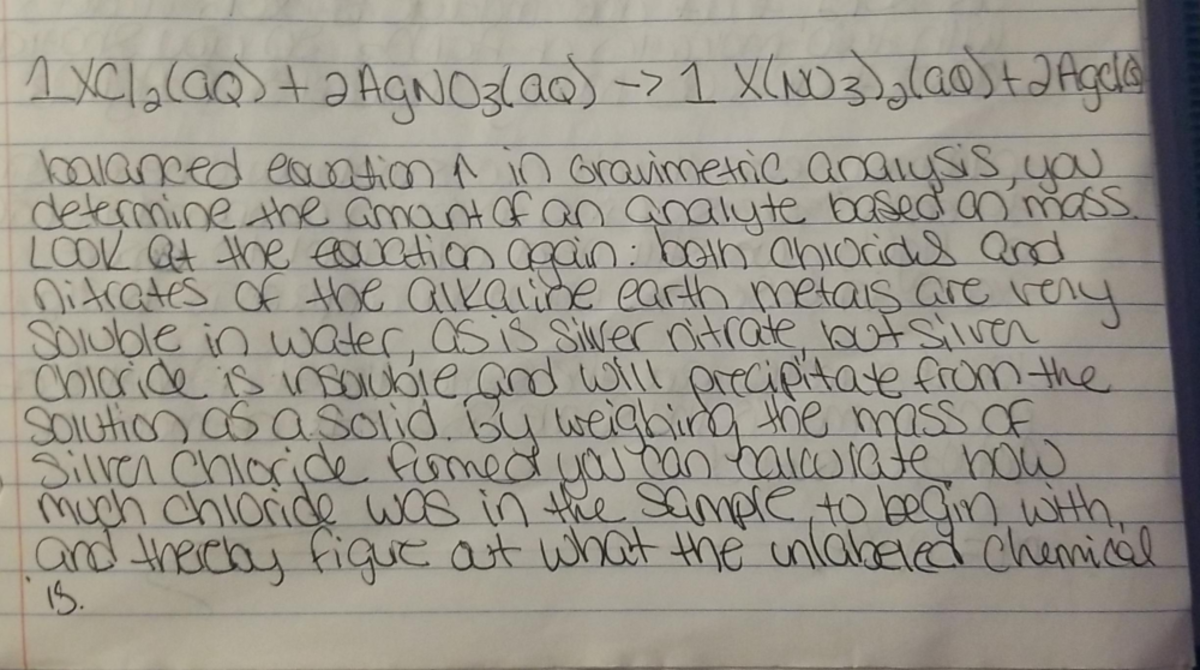 1 XCl₂(aQ) + 2AgNO₃(aQ) -> 1 X(NO₃)₂(aQ) + 2AgCl(s)
balanced equation ↑ in Gravimetric analysis, you
determine the amount of an analyte based on mass.
LOOK at the equation again: both chlorids and
nitrates of the alkaline earth metals are very
soluble in water, as is silver nitrate, but silver
chloride is insoluble, and will precipitate from the
solution as a solid. By weighing the mass of
silver chloride formed you can calculate how
much chloride was in the sample, to begin with,
and thereby figure out what the unlabeled chemical
is.